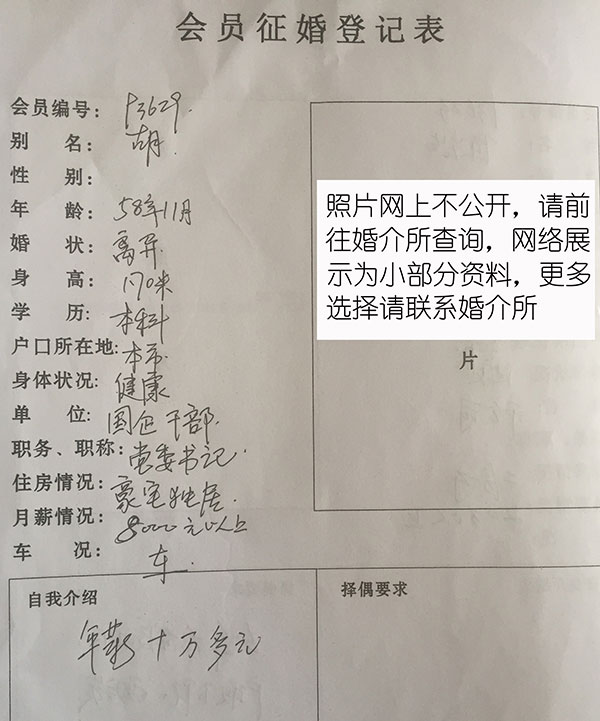 会员征婚登记表
会员编号: P3629.
别 名: 胡
性 别:
年 龄: 58年11月
婚 状: 离异.
身 高: 170米
学 历: 本科
户口所在地: 本市.
身体状况: 健康
单 位: 国企干部.
职务、职称: 党委书记.
住房情况: 豪宅独居.
月薪情况: 8000元以上
车 况: 车.
照片网上不公开，请前
往婚介所查询，网络展
示为小部分资料，更多
选择请联系婚介所
片
自我介绍
年薪十万多元
择偶要求